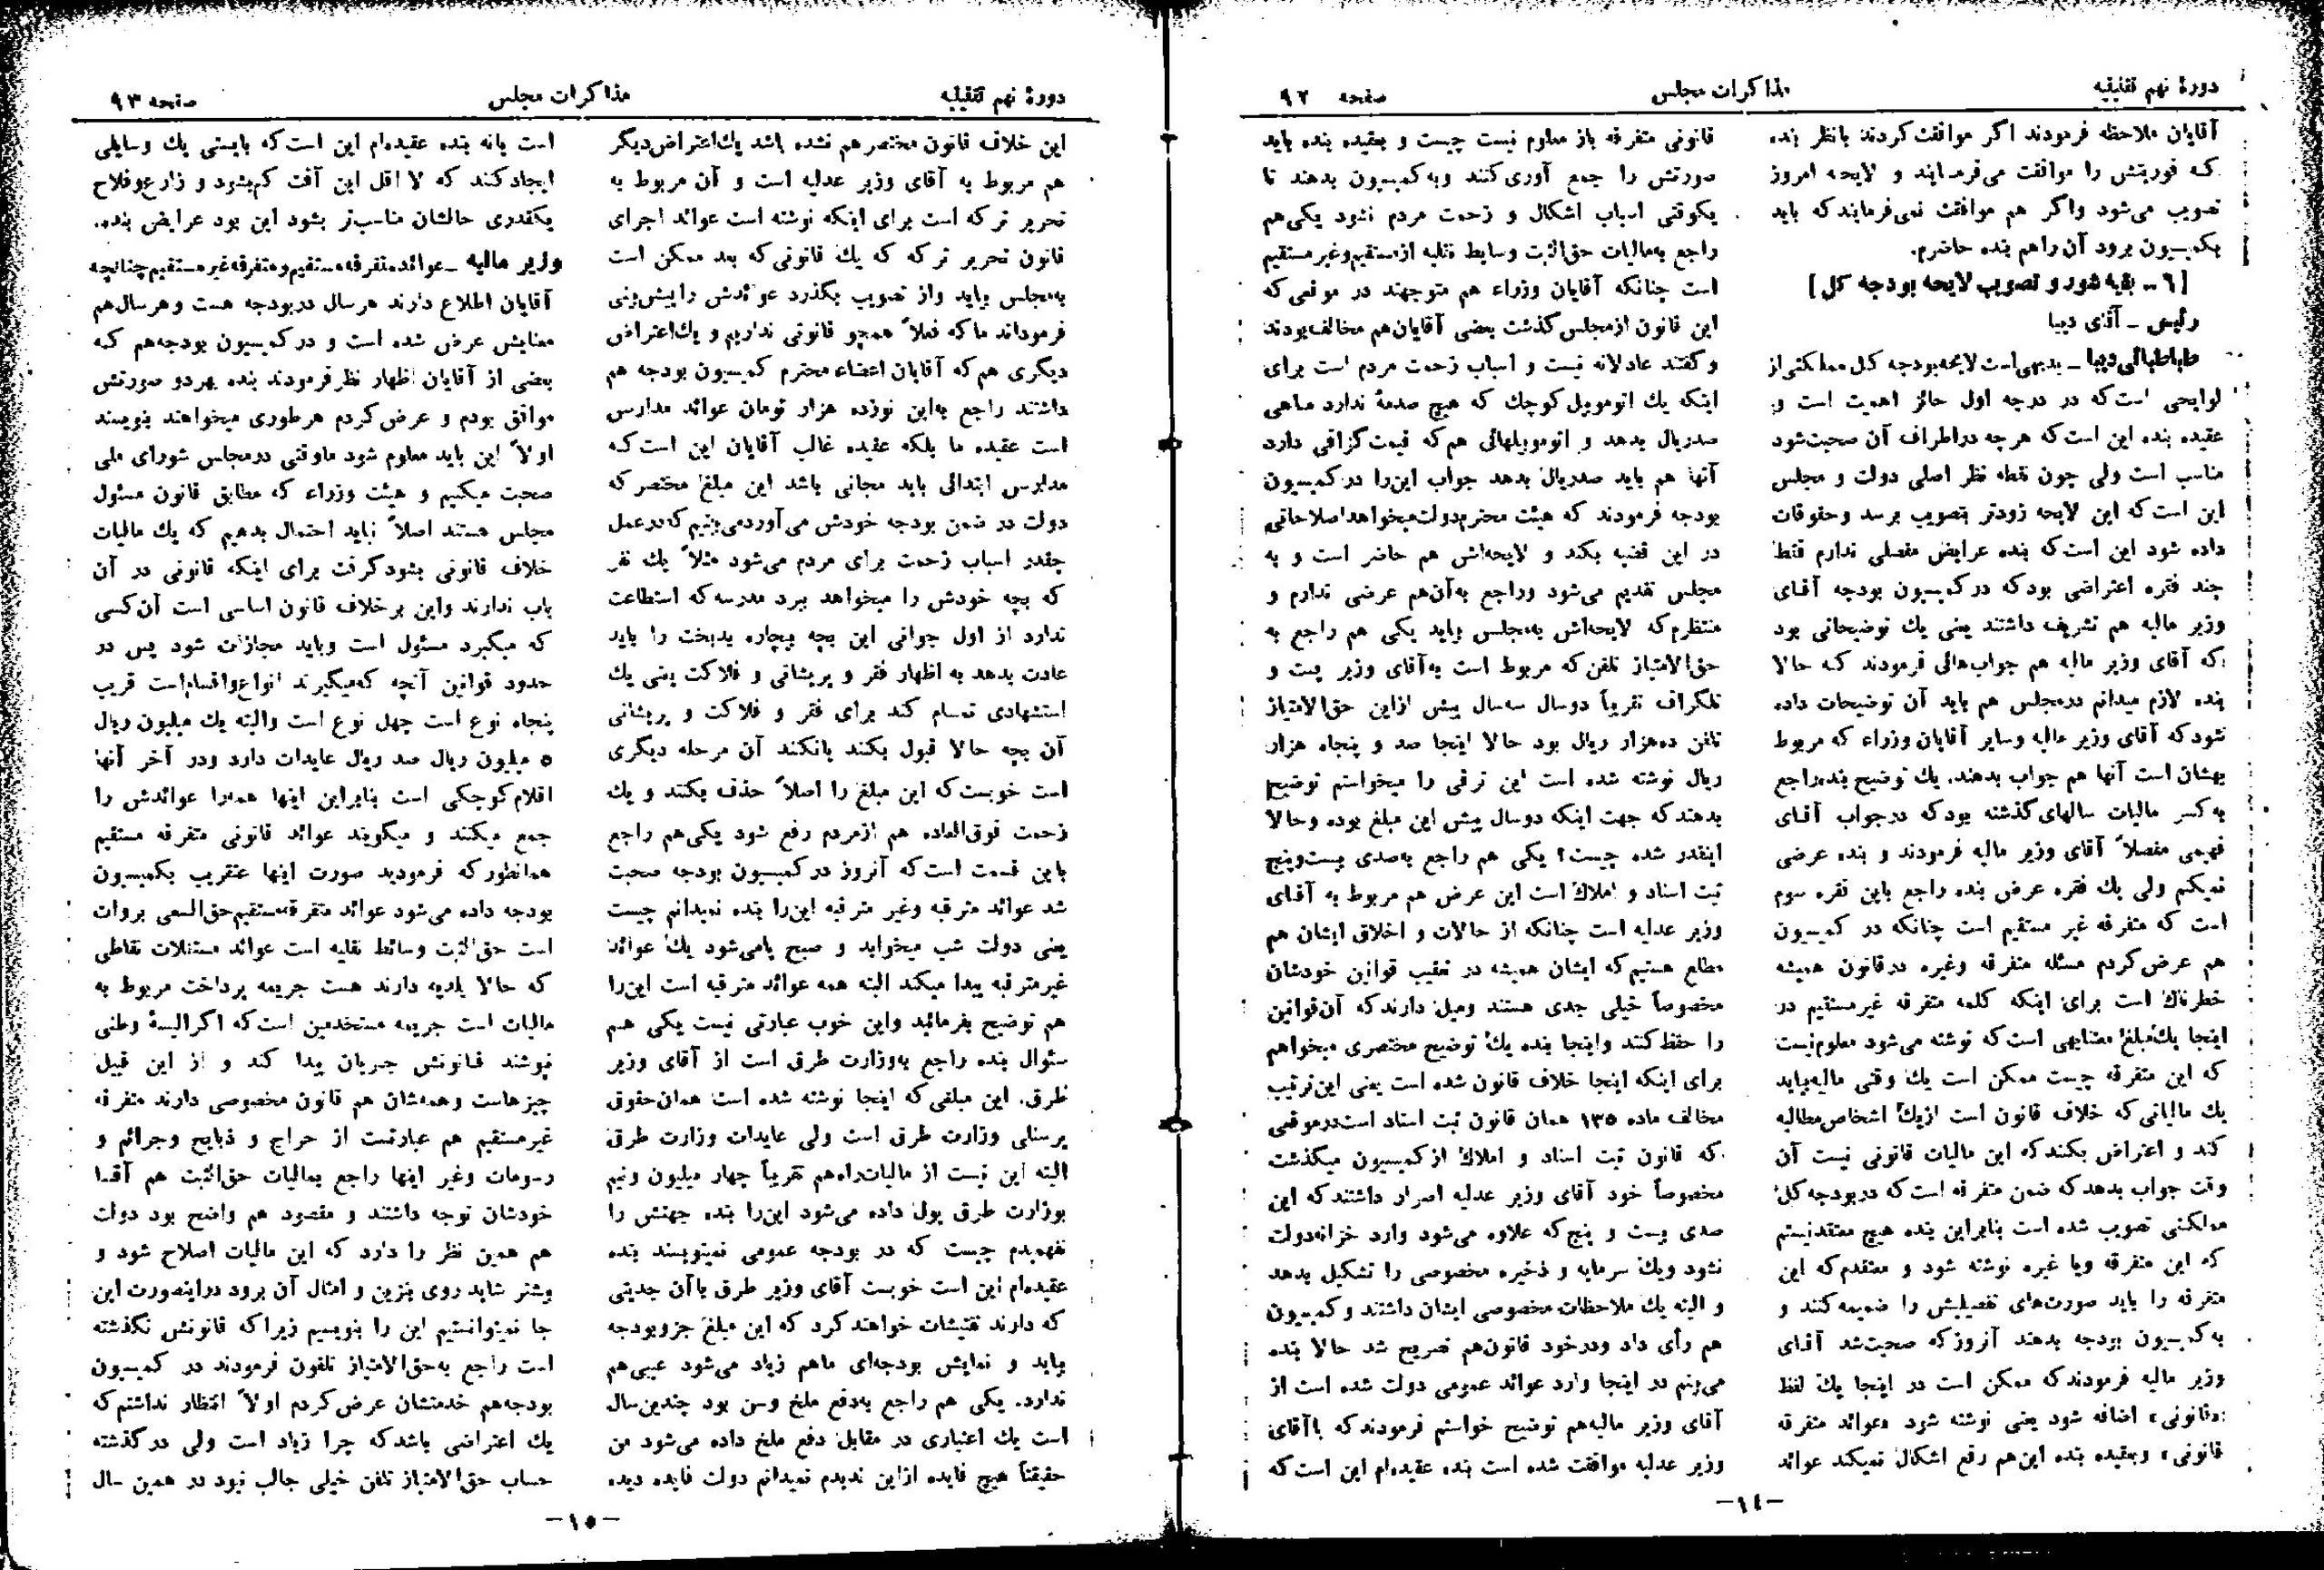 دورهٔ نهم تقنینیه
مذاکرات مجلس
صفحه ۹۲
آقایان ملاحظه فرمودند اگر موافقت کردند بانظر بنده
که فوریتش را موافقت می‌فرمایند و لایحه امروز
تصویب می‌شود واگر هم موافقت نمی‌فرمایند که باید
بکمیسیون برود آن راهم بنده حاضرم.
[۶ - بقیه شور و تصویب لایحه بودجه کل]
رئیس - آقای دیبا
طباطبائی دیبا - بدیهی است لایحه بودجه کل مملکتی از
لوایحی است که در درجه اول حائز اهمیت است و
عقیده بنده این است که هرچه دراطراف آن صحبت شود
مناسب است ولی چون نقطه نظر اصلی دولت و مجلس
این است که این لایحه زودتر بتصویب برسد وحقوقات
داده شود این است که بنده عرایض مفصلی ندارم فقط
چند فقره اعتراضی بود که در کمیسیون بودجه آقای
وزیر مالیه هم تشریف داشتند یعنی یك توضیحاتی بود
که آقای وزیر مالیه هم جواب‌هائی فرمودند که حالا
بنده لازم میدانم درمجلس هم باید آن توضیحات داده
شود که آقای وزیر مالیه وسایر آقایان وزراء که مربوط
بهشان است آنها هم جواب بدهند. یك توضیح بنده راجع
به کسر مالیات سالهای گذشته بود که درجواب آقای
فهیمی مفصلاً آقای وزیر مالیه فرمودند و بنده عرضی
نمیکنم ولی یك فقره عرض بنده راجع باین فقره سوم
است که متفرقه غیر مستقیم است چنانکه در کمیسیون
هم عرض کردم مسئله متفرقه وغیره درقانون همیشه
خطرناك است برای اینکه کلمه متفرقه غیرمستقیم در
اینجا یك مبلغ معتنابهی است که نوشته می‌شود معلوم نیست
که این متفرقه چیست ممکن است یك وقتی مالیه بیاید
یك مالیاتی که خلاف قانون است ازیك اشخاص مطالبه
کند و اعتراض بکنند که این مالیات قانونی نیست آن
وقت جواب بدهد که ضمن متفرقه است که دربودجه کل
مملکتی تصویب شده است بنابراین بنده هیچ معتقدنیستم
که این متفرقه ویا غیره نوشته شود و معتقدم که این
متفرقه را باید صورت‌های تفصیلیش را ضمیمه کنند و
به کمیسیون بودجه بدهند آنروز که صحبت شد آقای
وزیر مالیه فرمودند که ممکن است در اینجا یك لفظ
«قانونی» اضافه شود یعنی نوشته شود «عوائد متفرقه
قانونی» وبعقیده بنده این هم رفع اشکال نمیکند عوائد
قانونی متفرقه باز معلوم نیست چیست و بعقیده بنده باید
صورتش را جمع آوری کنند وبه کمیسیون بدهند تا
یکوقتی اسباب اشکال و زحمت مردم نشود یکی هم
راجع به مالیات حق‌الثبت وسایط نقلیه ازمستقیم وغیرمستقیم
است چنانکه آقایان وزراء هم متوجهند در موقعی که
این قانون ازمجلس گذشت بعضی آقایان هم مخالف بودند
و گفتند عادلانه نیست و اسباب زحمت مردم است برای
اینکه یك اتوموبیل کوچك که هیچ صدمهٔ ندارد ماهی
صدریال بدهد و اتوموبیلهائی هم که قیمت گزافی دارد
آنها هم باید صدریال بدهد جواب این‌را در کمیسیون
بودجه فرمودند که هیئت محترم دولت میخواهد اصلاحاتی
در این قضیه بکند و لایحه‌اش هم حاضر است و به
مجلس تقدیم می‌شود وراجع به‌آن هم عرضی ندارم و
منتظرم که لایحه‌اش به‌مجلس بیاید یکی هم راجع به
حق‌الامتیاز تلفن که مربوط است به‌آقای وزیر پست و
تلگراف تقریباً دوسال سه‌سال پیش ازاین حق‌الامتیاز
تلفن ده‌هزار ریال بود حالا اینجا صد و پنجاه هزار
ریال نوشته شده است این ترقی را میخواستم توضیح
بدهند که جهت اینکه دوسال پیش این مبلغ بوده وحالا
اینقدر شده چیست؟ یکی هم راجع به‌صدی بیست‌وپنج
ثبت اسناد و املاك است این عرض هم مربوط به آقای
وزیر عدلیه است چنانکه از حالات و اخلاق ایشان هم
مطلع هستیم که ایشان همیشه در تعقیب قوانین خودشان
مخصوصاً خیلی جدی هستند ومیل دارند که آن قوانین
را حفظ کنند واینجا بنده یك توضیح مختصری میخواهم
برای اینکه اینجا خلاف قانون شده است یعنی این ترتیب
مخالف ماده ۱۳۵ همان قانون ثبت اسناد است درموقعی
که قانون ثبت اسناد و املاك از کمیسیون میگذشت
مخصوصاً خود آقای وزیر عدلیه اصرار داشتند که این
صدی بیست و پنج که علاوه می‌شود وارد خزانه‌دولت
نشود ویك سرمایه و ذخیره مخصوصی را تشکیل بدهد
و البته یك ملاحظات مخصوصی ایشان داشتند و کمیسیون
هم رأی داد ودرخود قانون هم تصریح شد حالا بنده
می‌بینم در اینجا وارد عوائد عمومی دولت شده است از
آقای وزیر مالیه‌هم توضیح خواستم فرمودند که باآقای
وزیر عدلیه موافقت شده است بنده عقیده‌ام این است که
-۱۴-
دورهٔ نهم تقنینیه
مذاکرات مجلس
صفحه ۹۳
این خلاف قانون مختصر هم نشده باشد یك اعتراض دیگر
هم مربوط به آقای وزیر عدلیه است و آن مربوط به
تحریر ترکه است برای اینکه نوشته است عوائد اجرای
قانون تحریر ترکه که یك قانونی که بعد ممکن است
به‌مجلس بیاید واز تصویب بگذرد عوائدش را پیش‌بینی
فرموداند ماکه فعلاً همچو قانونی نداریم و یك اعتراض
دیگری هم که آقایان اعضاء محترم کمیسیون بودجه هم
داشتند راجع به‌این نوزده هزار تومان عوائد مدارس
است عقیده ما بلکه عقیده غالب آقایان این است که
مدارس ابتدائی باید مجانی باشد این مبلغ مختصر که
دولت در ضمن بودجه خودش می‌آورد می‌بینیم که درعمل
چقدر اسباب زحمت برای مردم می‌شود مثلاً یك نفر
که بچه خودش را میخواهد ببرد مدرسه که استطاعت
ندارد از اول جوانی این بچه بیچاره بدبخت را باید
عادت بدهد به اظهار فقر و پریشانی و فلاکت یعنی یك
استشهادی تمام کند برای فقر و فلاکت و پریشانی
آن بچه حالا قبول بکند یانکند آن مرحله دیگری
است خوبست که این مبلغ را اصلاً حذف بکنند و یك
زحمت فوق‌العاده هم ازمردم رفع شود یکی هم راجع
باین قسمت است که آنروز در کمیسیون بودجه صحبت
شد عوائد مترقبه وغیر مترقبه این‌را بنده نمیدانم چیست
یعنی دولت شب میخوابد و صبح پامی‌شود یك عوائد
غیرمترقبه پیدا میکند البته همه عوائد مترقبه است این‌را
هم توضیح بفرمائید واین خوب عبارتی نیست یکی هم
سئوال بنده راجع به‌وزارت طرق است از آقای وزیر
طرق. این مبلغی که اینجا نوشته شده است همان حقوق
پرسنلی وزارت طرق است ولی عایدات وزارت طرق
البته این نیست از مالیات راه هم تقریباً چهار میلیون ونیم
بوزارت طرق پول داده می‌شود این‌را بنده جهتش را
نفهمیدم چیست که در بودجه عمومی نمینویسند بنده
عقیده‌ام این است خوبست آقای وزیر طرق باآن جدیتی
که دارند تفتیشات خواهند کرد که این مبلغ جزو بودجه
بیاید و نمایش بودجه‌ای ماهم زیاد می‌شود عیبی هم
ندارد. یکی هم راجع به‌دفع ملخ وسن بود چندین سال
است یك اعتباری در مقابل دفع ملخ داده می‌شود من
حقیقتاً هیچ فایده ازاین ندیدم نمیدانم دولت فایده دیده
است یانه بنده عقیده‌ام این است که بایستی یك وسایلی
ایجاد کند که لا اقل این آفت کم بشود و زارع وفلاح
یکقدری حالشان مناسب‌تر بشود این بود عرایض بنده.
وزیر مالیه - عوائد متفرقه مستقیم و متفرقه غیر مستقیم چنانچه
آقایان اطلاع دارند هرسال دربودجه هست وهرسال هم
معنایش عرض شده است و در کمیسیون بودجه هم که
بعضی از آقایان اظهار نظر فرمودند بنده بهردو صورتش
موافق بودم و عرض کردم هرطوری میخواهند بنویسند
اولاً این باید معلوم شود ماوقتی درمجلس شورای ملی
صحبت میکنیم و هیئت وزراء که مطابق قانون مسئول
مجلس هستند اصلاً نباید احتمال بدهیم که یك مالیات
خلاف قانونی بشود گرفت برای اینکه قانونی در آن
باب ندارند واین برخلاف قانون اساسی است آن کسی
که میگیرد مسئول است وباید مجازات شود پس در
حدود قوانین آنچه که میگیرند انواع واقسام است قریب
پنجاه نوع است چهل نوع است والبته یك میلیون ریال
۵ میلیون ریال صد ریال عایدات دارد ودر آخر آنها
اقلام کوچکی است بنابراین اینها همه‌را عوائدش را
جمع میکنند و میگویند عوائد قانونی متفرقه مستقیم
همانطور که فرمودید صورت اینها عنقریب بکمیسیون
بودجه داده می‌شود عوائد متفرقه مستقیم حق‌السعی بروات
است حق‌الثبت وسائط نقلیه است عوائد مستغلات نقاطی
که حالا بلدیه دارند هست جریمه پرداخت مربوط به
مالیات است جریمه مستخدمین است که اگر البسهٔ وطنی
نپوشند قانونش جریان پیدا کند و از این قبیل
چیزهاست وهمه‌شان هم قانون مخصوصی دارند متفرقه
غیرمستقیم هم عبارتست از حراج و ذبایح وجرائم و
رسومات وغیر اینها راجع بمالیات حق‌الثبت هم آقا
خودشان توجه داشتند و مقصود هم واضح بود دولت
هم همین نظر را دارد که این مالیات اصلاح شود و
بیشتر شاید روی بنزین و امثال آن برود دراینصورت این
جا نمیتوانستیم این را بنویسیم زیراکه قانونش نگذشته
است راجع به‌حق‌الامتیاز تلفون فرمودند در کمیسیون
بودجه‌هم خدمتشان عرض کردم اولاً انتظار نداشتم که
یك اعتراضی باشد که چرا زیاد است ولی در گذشته
حساب حق‌الامتیاز تلفن خیلی جالب نبود در همین سال
-۱۵-